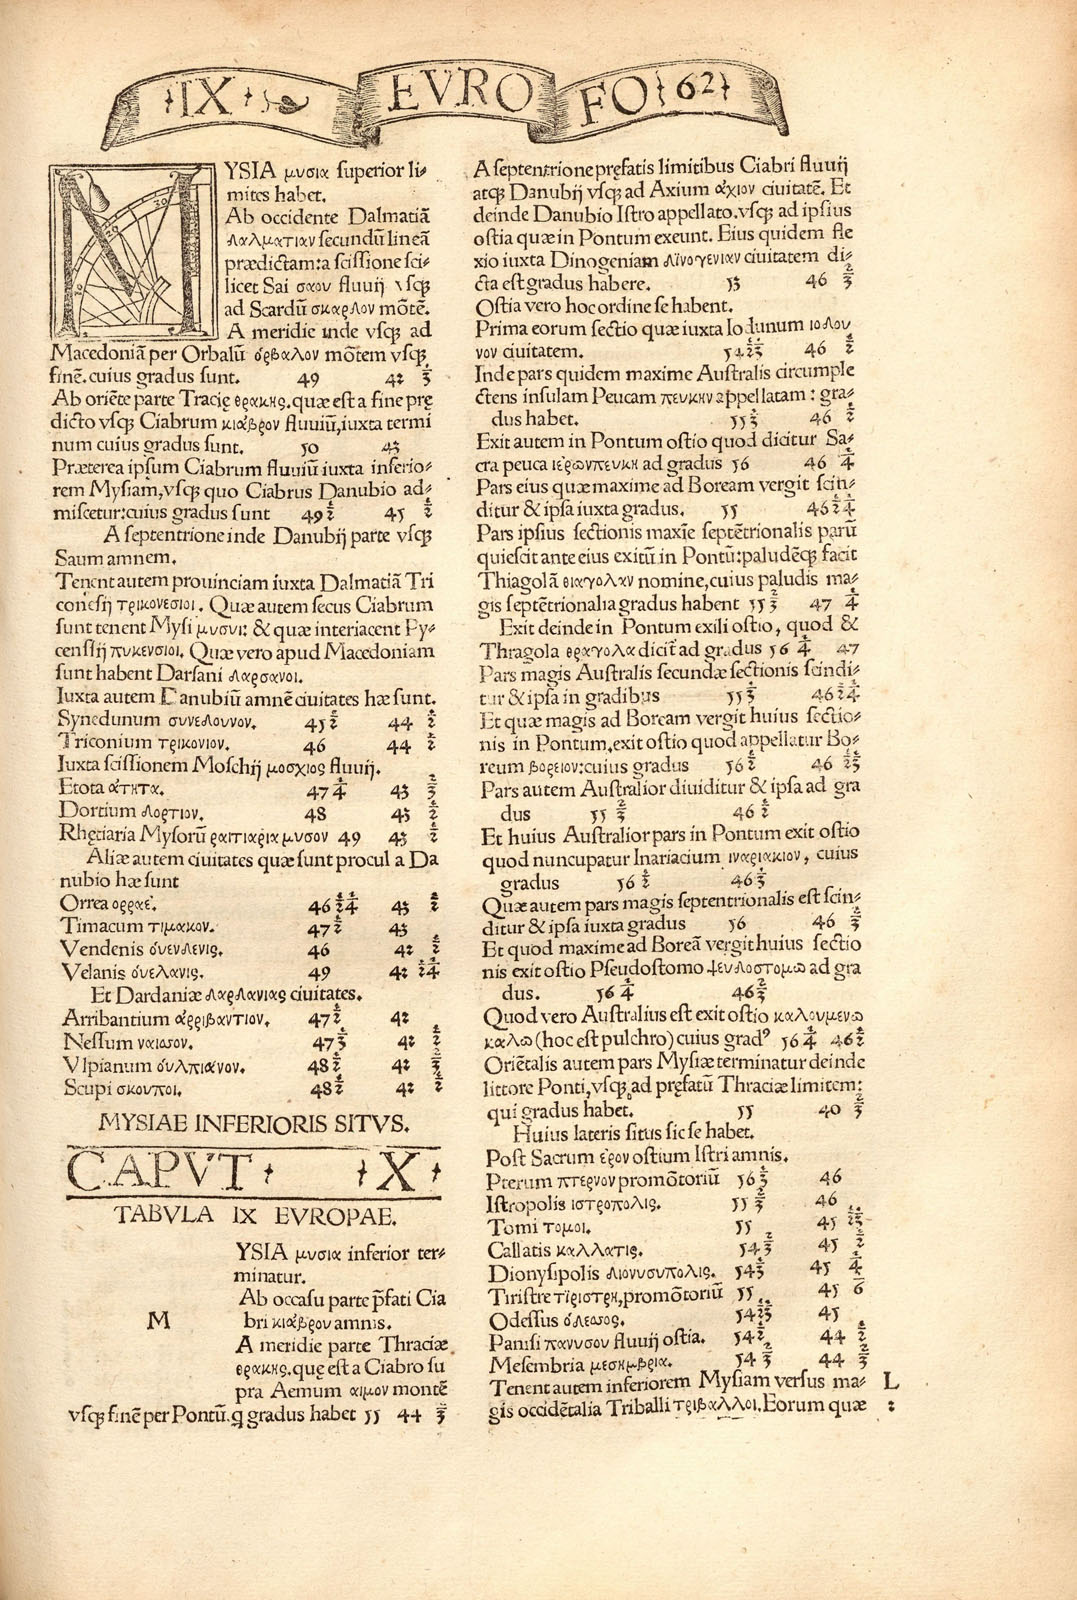 IX EVRO FO 62
MYSIA μυσια superior li⸗
mites habet.
Ab occidente Dalmatiã
Δαλματιαν secundũ lineã
prædictam: a scissione sci⸗
licet Sai σαου fluuij vsq;
ad Scardũ σκαρδον mõtẽ.
A meridie inde vsq; ad
Macedoniã per Orbalũ ὀρβαλον mõtem vsq;
finẽ. cuius gradus sunt. 49 42 1/3
Ab oriẽte parte Tracię θρακης. quæ est a fine prę
dicto vsq; Ciabrum κιάβρον fluuiũ, iuxta termi
num cuius gradus sunt. 50 43
Præterea ipsum Ciabrum fluuiũ iuxta inferio⸗
rem Mysiam, vsq; quo Ciabrus Danubio ad⸗
miscetur: cuius gradus sunt 49 1/2 45 1/2
A septentrione inde Danubij parte vsq;
Saum amnem.
Tenent autem prouinciam iuxta Dalmatiã Tri
conesij τρικονεσιοι. Quæ autem secus Ciabrum
sunt tenent Mysi μυσυι: & quæ interiacent Py⸗
censij πυκενσιοι. Quæ vero apud Macedoniam
sunt habent Darsani Δαρσανοι.
Iuxta autem Danubiũ amnẽ ciuitates hæ sunt.
Synedunum συνεδουνον. 45 1/2 44 1/2
Triconium τρικονιον. 46 44 1/2
Iuxta scissionem Moschij μοσχιος fluuij.
Etota ἀτητα. 47 1/4 43 2/3
Dortium Δορτιον. 48 43 1/2
Rhętiaria Mysorũ ραιτιαρια μυσον 49 43 1/2
Aliæ autem ciuitates quæ sunt procul a Da
nubio hæ sunt
Orrea ορραε. 46 1/2 1/4 43 1/2
Timacum τιμακον. 47 1/2 43
Vendenis ὀυενδενις. 46 42 1/2
Velanis ὀυελανις. 49 42 1/2 1/4
Et Dardaniæ Δαρδανιας ciuitates.
Arribantium ἀρριβαντιον. 47 1/2 42
Nessum ναισον. 47 1/3 42 1/2
Vlpianum ὀυλπιανον. 48 1/2 42 2/3
Scupi σκουποι. 48 1/2 42 1/2
MYSIAE INFERIORIS SITVS.
CAPVT X
TABVLA IX EVROPAE.
YSIA μυσια inferior ter⸗
minatur.
Ab occasu parte p̃fati Cia
M bri κιάβρου amnis.
A meridie parte Thraciæ
θρακης. quę est a Ciabro su
pra Aemum αιμον montẽ
vsq; finẽ per Pontũ. q̃ gradus habet 55 44 2/3
A septentrione pręfatis limitibus Ciabri fluuij
atq; Danubij vsq; ad Axium ἀχιον ciuitatẽ. Et
deinde Danubio Istro appellato. vsq; ad ipsius
ostia quæ in Pontum exeunt. Eius quidem fle
xio iuxta Dinogeniam Δϊνογενιαν ciuitatem di⸗
cta est gradus habere. 53 46 2/3
Ostia vero hoc ordine se habent.
Prima eorum sectio quæ iuxta Iodunum ιοδου
νον ciuitatem. 54 1/2 1/3 46 1/2
Inde pars quidem maxime Australis circumple
ctens insulam Peucam πευκην appellatam: gra⸗
dus habet. 55 1/3 46 1/2
Exit autem in Pontum ostio quod dicitur Sa⸗
cra peuca ιερωνπευκη ad gradus 56 46 1/4
Pars eius quæ maxime ad Boream vergit scin⸗
ditur & ipsa iuxta gradus. 55 46 1/2 1/4
Pars ipsius sectionis maxĩe septẽtrionalis parũ
quiescit ante eius exitũ in Pontũ: paludẽq; facit
Thiagolã θιαγολαν nomine, cuius paludis ma⸗
gis septẽtrionalia gradus habent 55 2/3 47 1/4
Exit deinde in Pontum exili ostio, quod &
Thragola θραγολα dicit̃ ad gradus 56 1/4 47
Pars magis Australis secundæ sectionis scindi⸗
tur & ipsa in gradibus 55 1/3 46 1/2 1/4
Et quæ magis ad Boream vergit huius sectio⸗
nis in Pontum, exit ostio quod appellatur Bo⸗
reum βορειον: cuius gradus 56 1/2 46 1/2 1/3
Pars autem Australior diuiditur & ipsa ad gra
dus 55 2/3 46 1/2
Et huius Australior pars in Pontum exit ostio
quod nuncupatur Inariacium ιναριακιον, cuius
gradus 56 1/2 46 1/3
Quæ autem pars magis septentrionalis est scin⸗
ditur & ipsa iuxta gradus 56 46 2/3
Et quod maxime ad Boreã vergit huius sectio
nis exit ostio Pseudostomo ψευδοστομω ad gra
dus. 56 1/4 46 2/3
Quod vero Australius est exit ostio καλουμενω
καλω (hoc est pulchro) cuius grad⁹ 56 1/4 46 1/2
Oriẽtalis autem pars Mysiæ terminatur deinde
littore Ponti, vsq; ad pręfatũ Thraciæ limitem:
qui gradus habet. 55 40 2/3
Huius lateris situs sic se habet.
Post Sacrum ἐρον ostium Istri amnis.
Pterum πτερνον promõtoriũ 56 1/3 46
Istropolis ιστροπολις. 55 2/3 46
Tomi τομοι. 55 45 1/2 1/3
Callatis καλλατις. 54 2/3 45 1/2
Dionysipolis Διονυσυπολις. 54 1/3 45 1/4
Tiristre τϊριστρη, promõtoriũ 55 45 1/6
Odessus ὀδεσος. 54 1/2 1/3 45
Panisi πανυσου fluuij ostia. 54 1/2 44 1/2
Mesembria μεσημβρια. 54 2/3 44 2/3
Tenent autem inferiorem Mysiam versus ma⸗ L
gis occidẽtalia Triballi τριβαλλοι. Eorum quæ 2